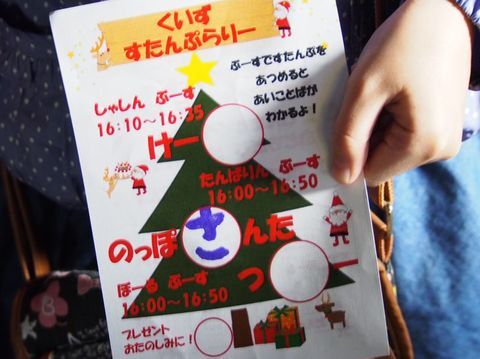 くいず
すたんぷらりー
ぶーすですたんぷを
あつめると
あいことばが
わかるよ！
しゃしん ぶーす
16:10～16:35
けー
たんばりん ぶーす
16:00～16:50
のっぽさんた
ぼーる ぶーす
16:00～16:50
つー
プレゼント
おたのしみに！
B